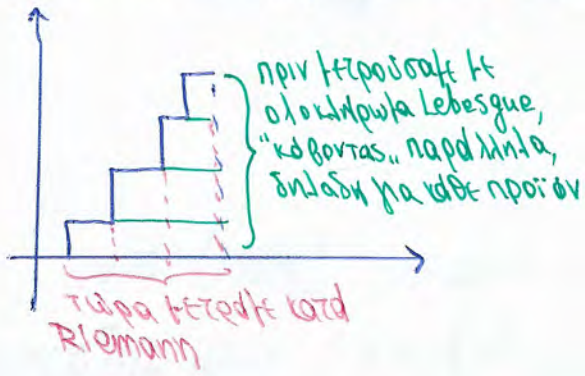 πριν μετρούσαμε με
ολοκλήρωμα Lebesgue,
"κόβοντας" παράλληλα,
δηλαδή για κάθε προϊόν
τώρα μετράμε κατά
Riemann